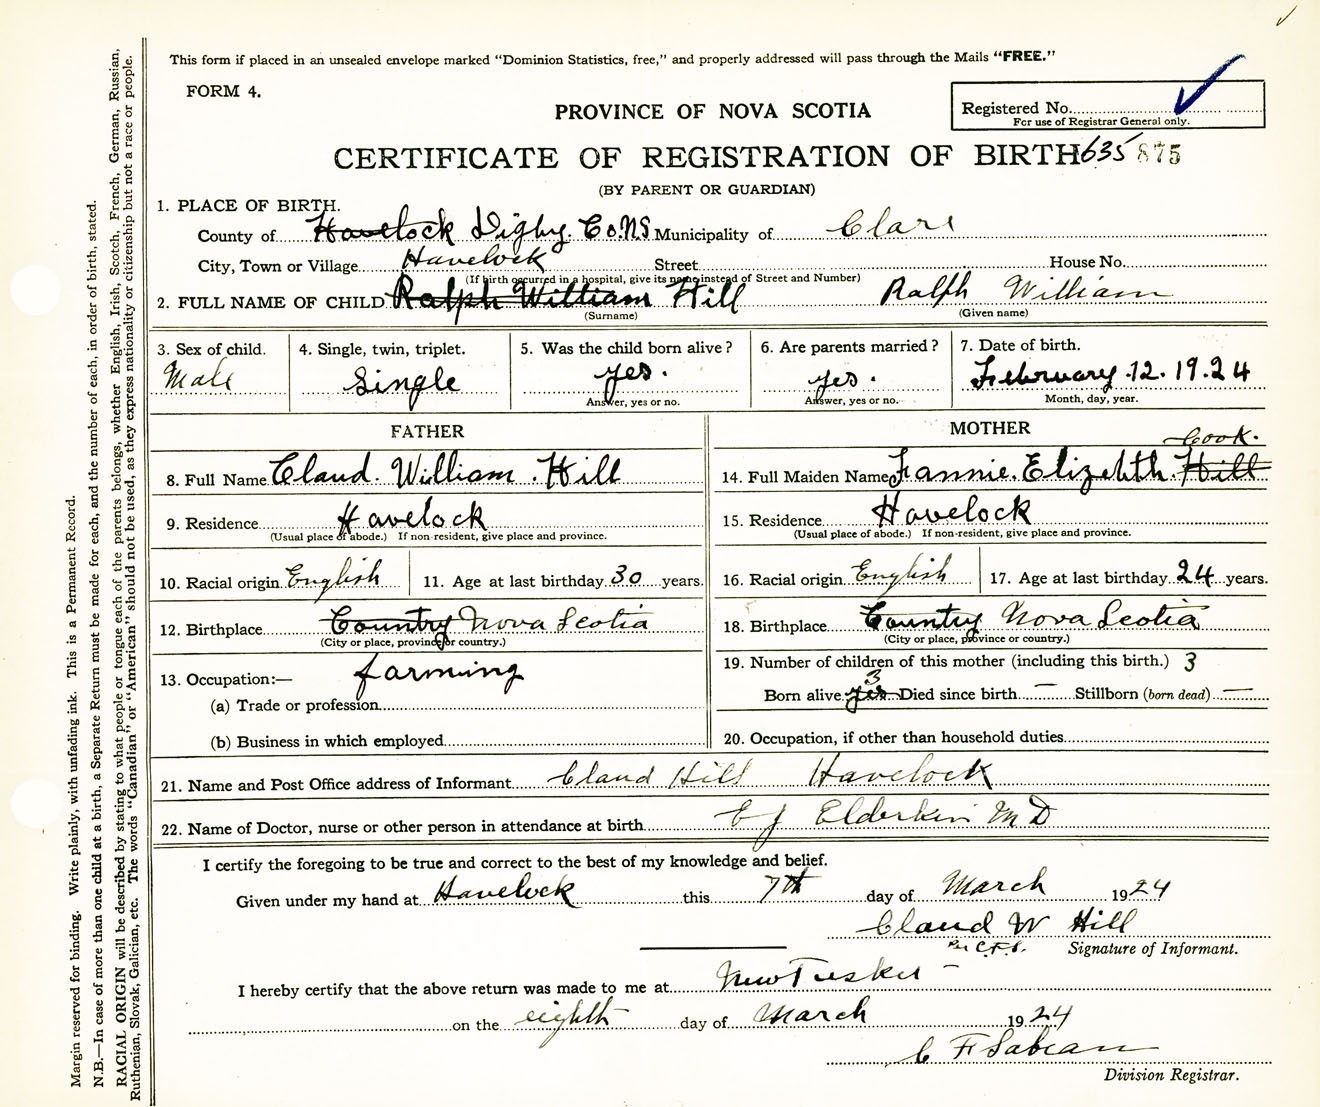 This form if placed in an unsealed envelope marked "Dominion Statistics, free," and properly addressed will pass through the Mails "FREE."
FORM 4.
PROVINCE OF NOVA SCOTIA
Registered No.
For use of Registrar General only.
CERTIFICATE OF REGISTRATION OF BIRTH 635 875
(BY PARENT OR GUARDIAN)
1. PLACE OF BIRTH.
County of Havelock Digby. Co. N.S Municipality of Clare
City, Town or Village Havelock Street House No.
(If birth occurred in a hospital, give its name instead of Street and Number)
2. FULL NAME OF CHILD Ralph William Hill Ralph William
(Surname) (Given name)
3. Sex of child. 4. Single, twin, triplet. 5. Was the child born alive? 6. Are parents married? 7. Date of birth.
Male Single yes. yes. February. 12. 19.24
Answer, yes or no. Answer, yes or no. Month, day, year.
FATHER MOTHER
Cook.
8. Full Name Claud. William. Hill 14. Full Maiden Name Fannie. Elizebth. Hill
9. Residence Havelock 15. Residence Havelock
(Usual place of abode.) If non-resident, give place and province. (Usual place of abode.) If non-resident, give place and province.
10. Racial origin English 11. Age at last birthday 30 years. 16. Racial origin English 17. Age at last birthday 24 years.
12. Birthplace Country Nova Scotia 18. Birthplace Country Nova Scotia
(City or place, province or country.) (City or place, province or country.)
13. Occupation:— farming 19. Number of children of this mother (including this birth.) 3
3
(a) Trade or profession Born alive yes Died since birth — Stillborn (born dead) —
(b) Business in which employed 20. Occupation, if other than household duties
21. Name and Post Office address of Informant Claud Hill Havelock
22. Name of Doctor, nurse or other person in attendance at birth E J Elderkin M D
I certify the foregoing to be true and correct to the best of my knowledge and belief.
Given under my hand at Havelock this 7th day of March 1924
Claud W Hill
Per C.F.S. Signature of Informant.
I hereby certify that the above return was made to me at New Tusket —
on the eighth day of March 1924
C F Sabean
Division Registrar.
Margin reserved for binding. Write plainly, with unfading ink. This is a Permanent Record.
N.B.—In case of more than one child at a birth, a Separate Return must be made for each, and the number of each, in order of birth, stated.
RACIAL ORIGIN will be described by stating to what people or tongue each of the parents belongs, whether English, Irish, Scotch, French, German, Russian,
Ruthenian, Slovak, Galician, etc. The words "Canadian" or "American" should not be used, as they express nationality or citizenship but not a race or people.